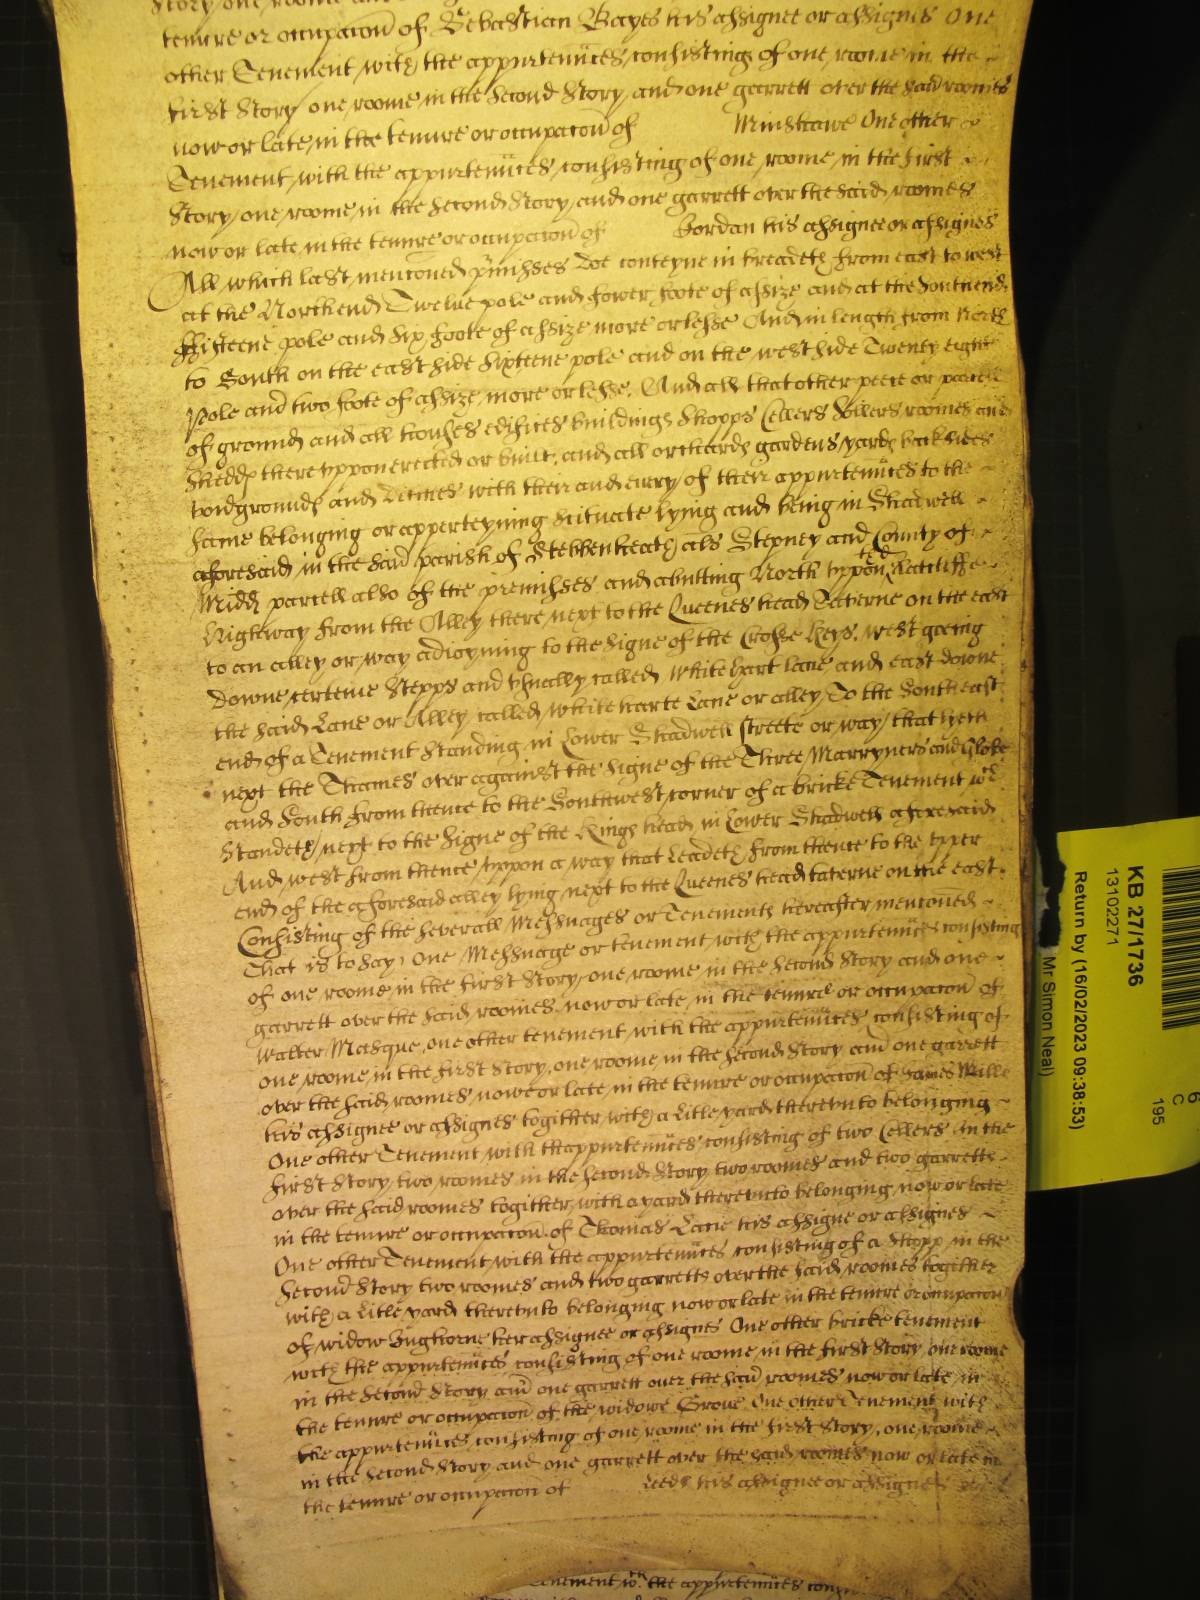 Story, one roome and
tenure or occupacon of Sebastian Bayes his assignee or assignes One
other Tenement with the appurtennces consisting of one roome in the
first Story one roome in the Second Story, and one garrett over the said roomes
now or late in the tenure or occupacon of Minshawe One other
Tenement with the appurtennces consisting of one roome in the first
Story one roome in the Second Story, and one garrett over the said roomes
now or late in the tenure or occupacon of Gordan his assignee or assignes
All which last mentoned pmisses doe conteyne in breadeth from east to west
at the North end Twelve pole and fower foote of assize and at the South end
ffifteene pole and six foote of assize more or lesse And in length from North
to South on the east side Sixteene pole and on the west side Twenty eight
Pole and two foote of assize more or lesse. And all that other peece or parcell
of ground and all houses edifices buildings Shopps Cellers Sollers roomes and
Shedds thereuppon erected or built, and all orchards gardens yards backsides
voidgrounds and Ditches with their and every of their appurtennces to the
same belonging or apperteyning Scituate lying and being in Shadwell
aforesaid in the said parish of Stebbenheath als Stepney and County of
Midd parcell also of the premisses and abutting North uppon Ratcliffe
Highway from the Alley there next to the Queenes head Taverne on the east
to an alley or way adioyning to the Signe of the Crosse Keys, west goeing
downe certeine Stepps and usually called White hart lane and east downe
the said Lane or Alley called White harte Lane or alley, To the South east
end of a Tenement Standing in Lower Shadwell streete or way that lyeth
next the Thames over against the Signe of the Three Marryners and Globe
and South from thence to the Southwest corner of a bricke Tenement wch
Standeth next to the Signe of the Kings head in Lower Shadwell aforesaid
And west from thence uppon a way that Leadeth from thence to the upper
end of the aforesaid alley lying next to the Queenes head taverne on the east.
Consisting of the severall Messuages or Tenements hereafter mentoned
That is to say, One Messuage or tenement with the appurtennces consisting
of one roome in the first Story, one roome in the Second Story and one
garrett over the said roomes now or late in the tenure or occupacon of
Walter Masque, one other tenement with the appurtennces consisting of
one roome in the first Story, one roome in the Second Story and one garrett
over the said roomes nowe or late in the tenure or occupacon of James Mills
his assignee or assignes togither with a Litle yard thereunto belonging
One other Tenement with thappurtennces consisting of two Cellers in the
first Story, two roomes in the Second Story two roomes and two garretts
over the said roomes togither with a yard thereunto belonging now or late
in the tenure or occupacon of Thomas Lane his assigne or assignes
One other Tenement with the appurtennces consisting of a Shopp in the
Second Story two roomes and two garretts over the said roomes togither
with a Litle yard thereunto belonging now or late in the tenure or occupacon
of widow her assignee or assignes One other bricke tenement
with the appurtennces consisting of one roome in the first Story, one roome
in the Second Story and one garrett over the said roomes now or late in
the tenure or occupacon of the widowe Grove One other Tenement with
the appurtennces consisting of one roome in the first Story, one roome
in the Second Story and one garrett over the said roomes now or late in
the tenure or occupacon of Leeds his assignee or assignes
Tenement wth the appurtennces
KB 27/1736
13102271
Return by (16/02/2023 09:38:53)
Mr Simon Neal)
195